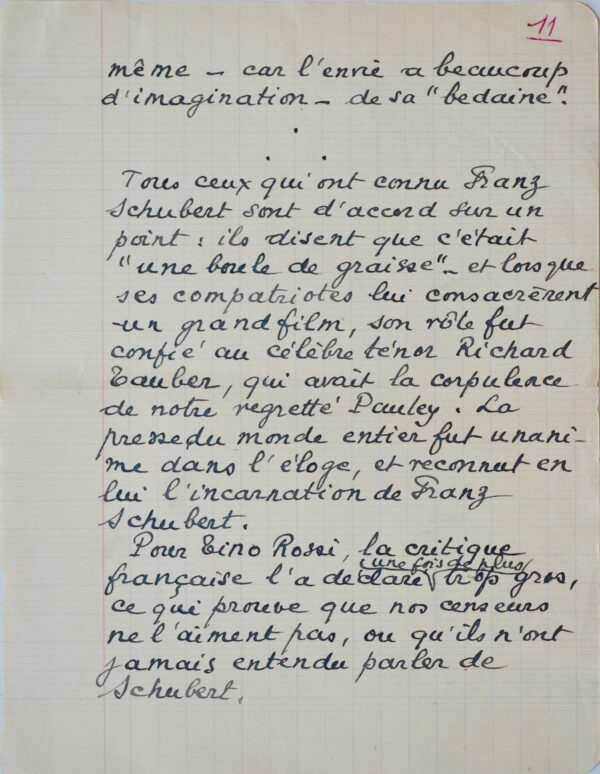 11
même _ car l'envie a beaucoup
d'imagination _ de sa "bedaine".
Tous ceux qui ont connu Franz
Schubert sont d'accord sur un
point : ils disent que c'était
"une boule de graisse" _ et lorsque
ses compatriotes lui consacrèrent
un grand film, son rôle fut
confié au célèbre ténor Richard
Tauber, qui avait la corpulence
de notre regretté Pauley. La
presse du monde entier fut unani-
me dans l'éloge, et reconnut en
lui l'incarnation de Franz
Schubert.
Pour Tino Rossi, la critique
(une fois de plus)
française l'a déclaré trop gros,
ce qui prouve que nos censeurs
ne l'aiment pas, ou qu'ils n'ont
jamais entendu parler de
Schubert.